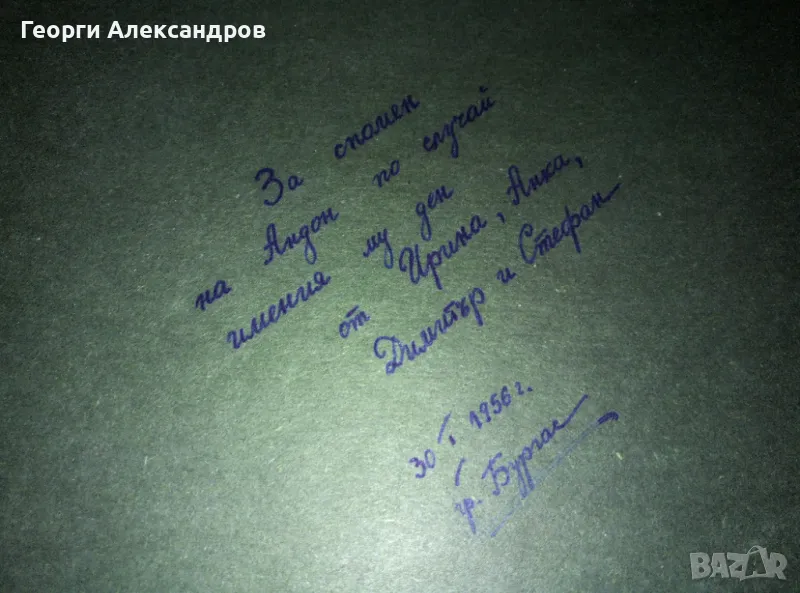 Георги Александров
За спомен
на Андон по случай
имения му ден
от Ирина, Анка,
Димитър и Стефан
30/I, 1956 г.
гр. Бургас
BAZAR